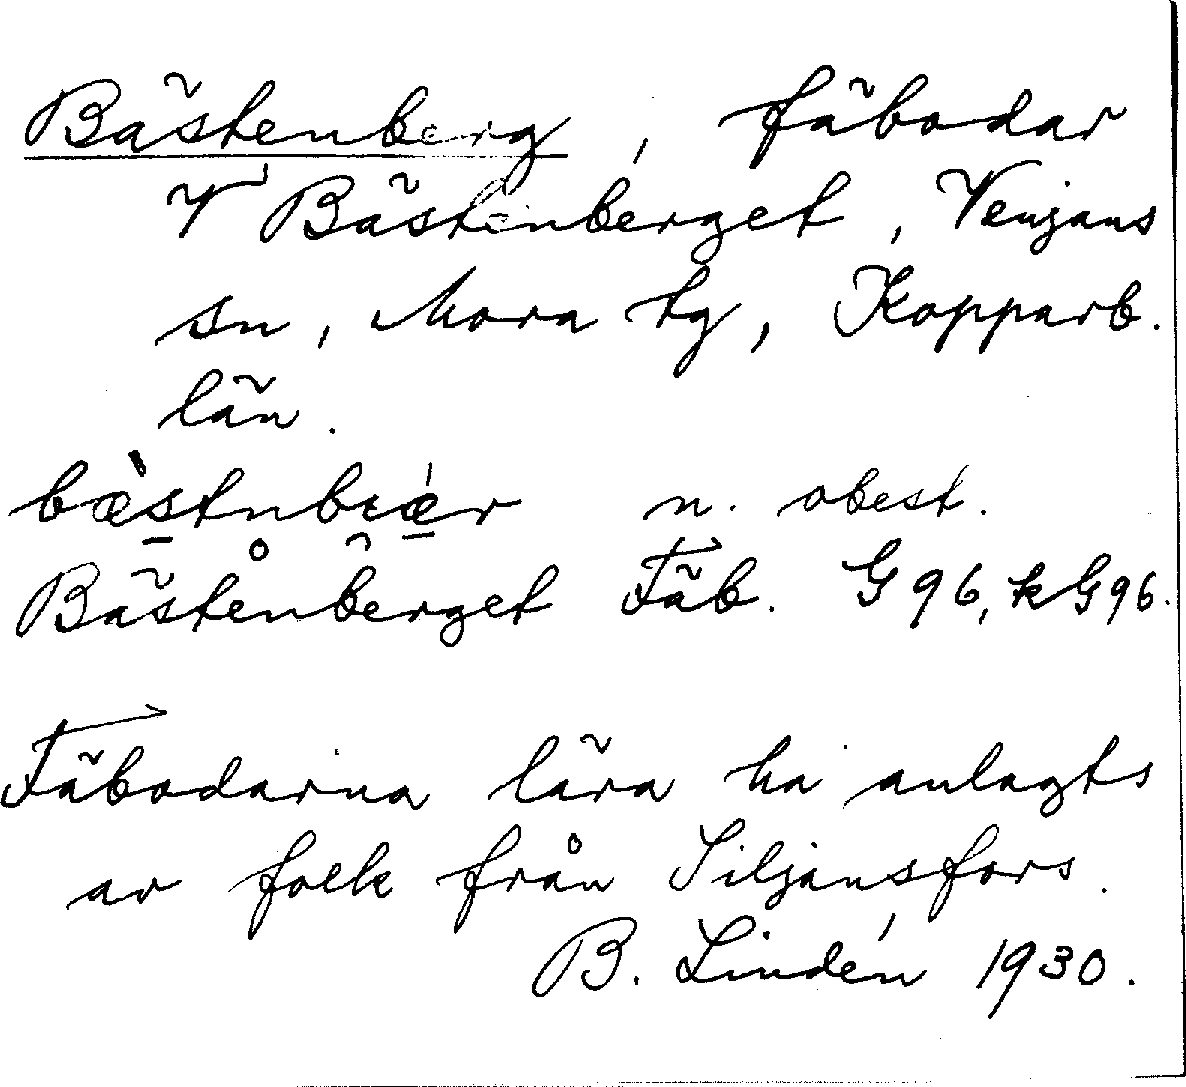 Bästenberg, fäbodar
V Bästenberget, Venjans
sn, Mora tg, Kopparb.
län.
bæ̀stn̥brǽr n. obest.
Bästenberget Fäb. G 96, kG96.
Fäbodarna lära ha anlagts
av folk från Siljansfors.
B. Lindén 1930.